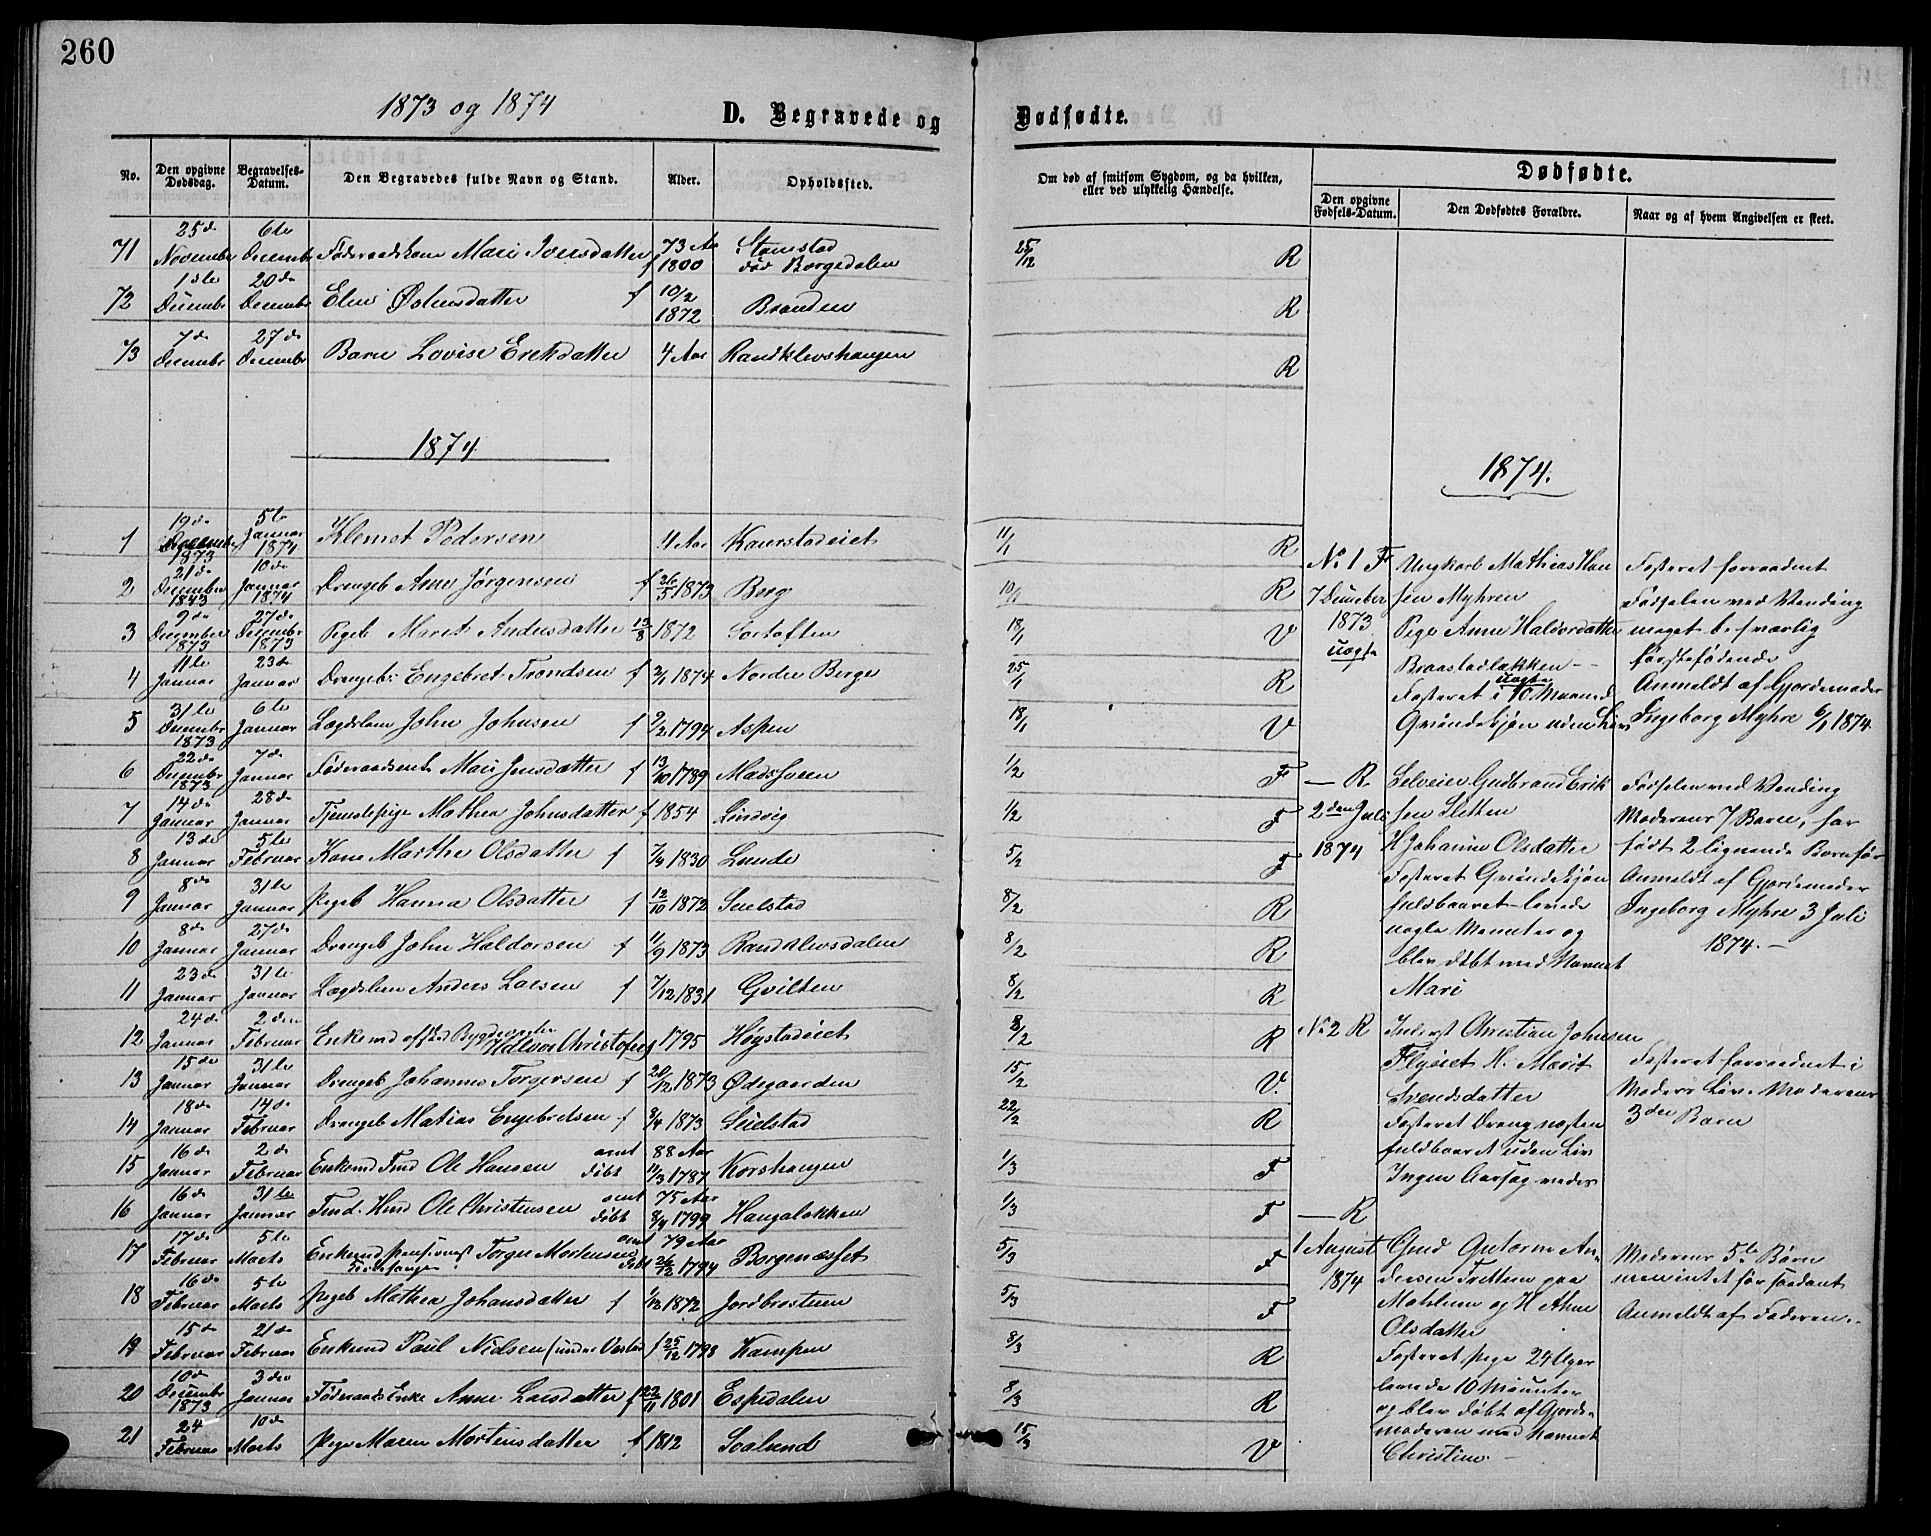 260
1873 og 1874
D. Begravede og Dødfødte.
No. Den opgivne Dødsdag. Begravelses-Datum. Den Begravedes fulde Navn og Stand. Alder. Opholdssted.
Om død af smitsom Sygdom, og da hvilken, eller ved ulykkelig Hændelse.
Dødfødte.
Den opgivne Fødsels-Datum. Den Dødfødtes Forældre. Naar og af hvem Angivelsen er skeet.
71 25de November 6te December Føderaadskone Mari Iversdatter f 73 Aar 1800 Stamstad død Borgedalen 25/12 R
72 1ste December 20de December Eline Østensdatter f 10/2 1872 Branden R
73 7de December 27de December Barn Lovise Eriksdatter 4 Aar Randklevshaugen R
1874
1 19de December 1873 5te Januar 1874 Klemet Pedersen 4 Aar Kaurstadeiet 11/1 R
2 21de December 1873 10de Januar 1874 Drengeb Arne Jørgensen f 26/5 1873 Berg 10/1 R
3 9de December 1873 27de December 1873 Pigeb Marit Andersdatter 13/8 1872 Sortoften 18/1 V
4 11te Januar 23de Januar Drengeb: Engebret Trondsen f 2/1 1874 Nordre Berge 25/1 R
5 31te December 1873 6te Januar Lægdslem John Johnsen f 9/2 1794 Aspen 18/1 V
6 22de December 1873 7de Januar Føderaadsenk Mari Jensdatter f 13/10 1789 Madssveen 1/2 F
7 14de Januar 28de Januar Tjenestepige Mathea Johnsdatter f 1854 Lindvig 1/2 F
8 13de Januar 5te Februar Kone Marthe Olsdatter f 7/9 1830 Lunde 5/2 F
9 8de Januar 31te Januar Pigeb Hanna Olsdatter f 12/10 1872 Sulstad 8/2 R
10 8de Januar 27de Januar Drengeb John Haldorsen f 11/9 1873 Randklevsdalen 8/2 R
11 23de Januar 31te Januar Lægdslem Anders Larsen f 7/12 1831 Gvilten 8/2 R
12 24de Januar 2den Februar Enkemd Halvor Christofers 1795 Høystadeiet 8/2 R
13 15de Januar 31te Januar Drengeb Johannes Torgersen f 20/12 1873 Ødegaarden 15/2 V.
14 18de Januar 14de Februar Drengeb Matias Engebretsen f 8/4 1873 Sulstad 22/2 R
15 16de Januar 2de Februar Enkemd Ole Hansen omt døbt 88 Aar 11/3 1787 Korshaugen 1/3 F
16 16de Januar 31te Januar Ole Christensen omt døbt 75 Aar 8/4 1799 Haugaløkken 1/3 F
17 17de Februar 5te Marts Enkemd pensionist Torger Mortensen omt døbt 79 Aar 26/12 1794 Borgenæsset 5/3 F
18 16de Februar 5te Marts Pigeb Mathea Johansdatter f 1/12 1872 Jordbrosteen 5/3 F
19 15de Februar 21de Februar Enkemd Paul Nielsen f 25/12 1798 Kampen 8/3 R
20 10de December 1873 3den Januar Føderaads Enke Anne Larsdatter f 22/11 1801 Espedalen 8/3 R
21 24 Februar 10de Marts Pige Maren Mortensdatter f 1812 Soalund 15/3 V
1874.
No 1 F
7 December
1873
uægte
Ungkarl Mathias Han
sen Myhren
Pige Anne Haldorsdatter
Braastadløkken -
Fosteret i 10 Maaned
uægte
Qvindekjøn uden Liv
Fosteret forraadnet
Fødselen ved Vending
meget besværlig
førstefødende
Anmeldt af Gjordemoder
Ingeborg Myhre 6/1 1874
— R
2den Juli
1874
Selveier Gudbrand Erik
sen Sletten
H Johanne Olsdatter
Fosteret Qvindekjøn
fuldbaaret - levede
nogle Minuter og
blev døbt med Navnet
Mari
Fødselen ved Vending
Moderens 7 Barn, har
født 2 lignende Børn før
Anmeldt af Gjordemoder
Ingeborg Myhre 3 Juli
1874. -
No 2 R
Inderst Christian Johnsen
Flyeiet H. Marit
Svendsdatter
Fosteret Dreng næsten
fuldbaaret uden Liv
Ingen Aarsag vides
Fosteret forraadnet i
Moders Liv. Moderens
3den Barn
— R
1 August
1874
Gmd Gutorm An-
dersen Fretten paa
og H Anne
Olsdatter
Fosteret Pige 24 Uger
levede 10 Minuter
og blev døbt af Gjorde-
moderen med Navnet
Christine -
Moderens 5te Barn
men intet før saadant
Anmeldt af Faderen.